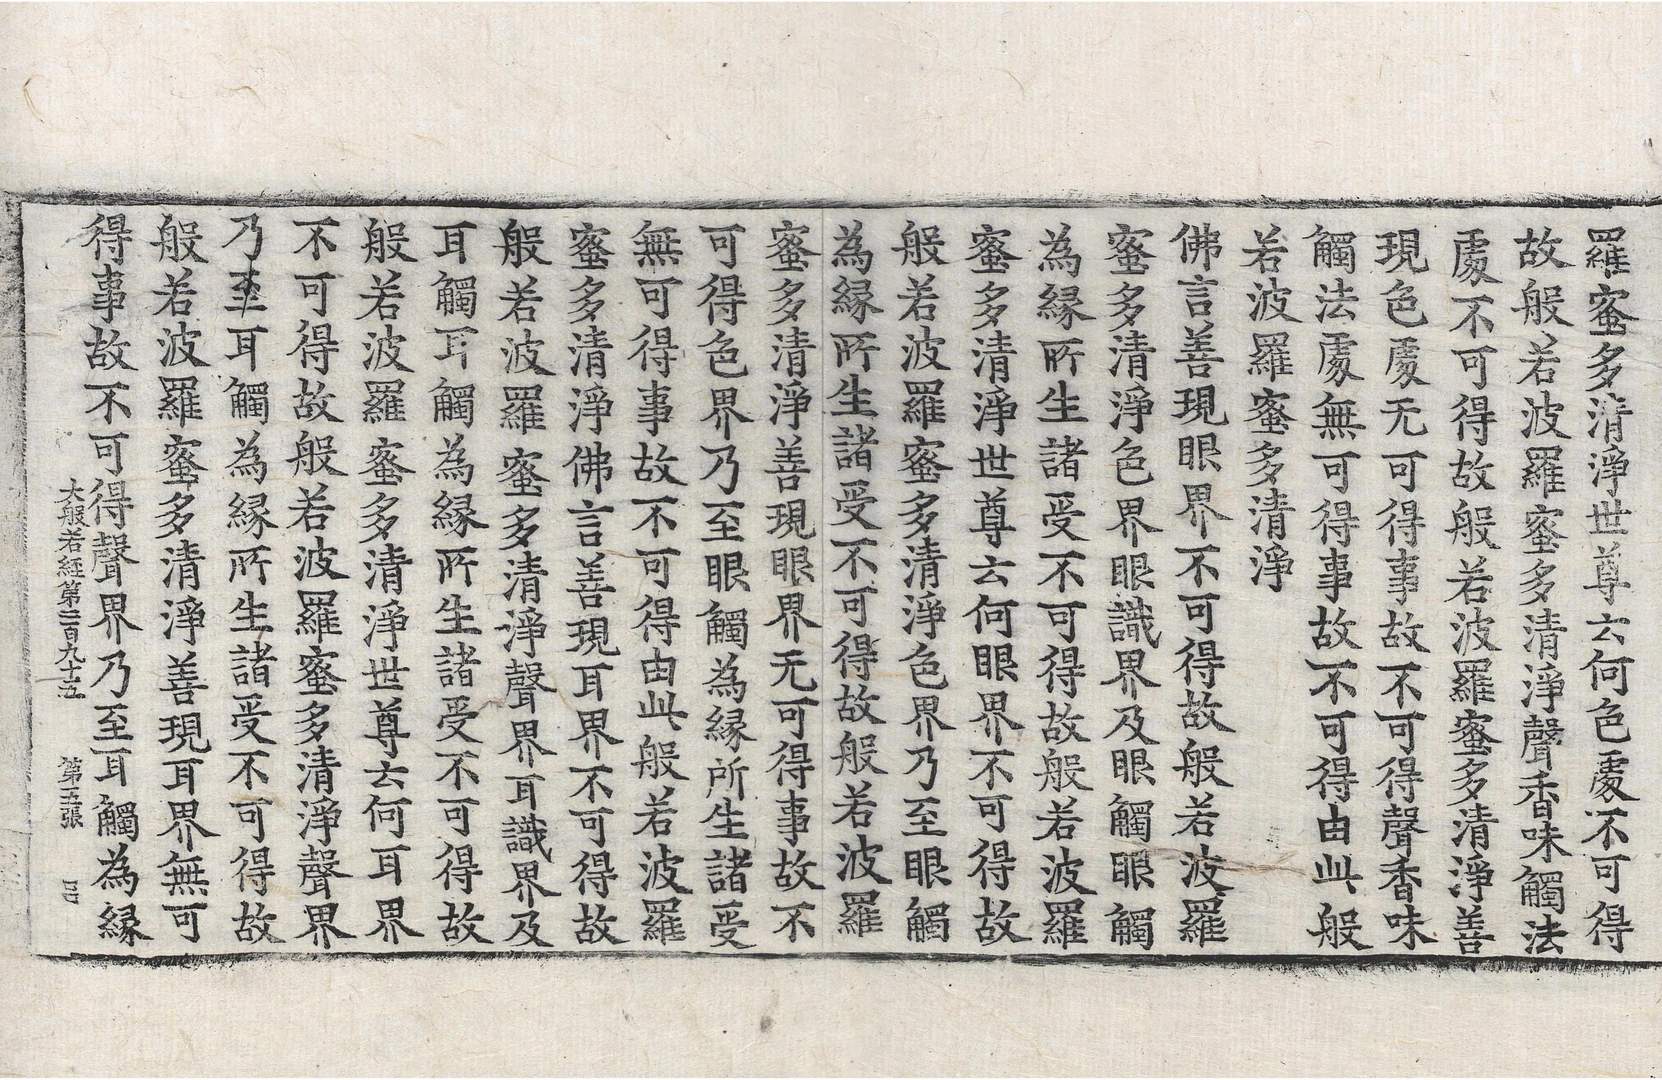 羅蜜多清淨世尊云何色處不可得
故般若波羅蜜多清淨聲香味觸法
處不可得故般若波羅蜜多清淨善
現色處无可得事故不可得聲香味
觸法處無可得事故不可得由此般
若波羅蜜多清淨
佛言善現眼界不可得故般若波羅
蜜多清淨色界眼識界及眼觸眼觸
為縁所生諸受不可得故般若波羅
蜜多清淨世尊云何眼界不可得故
般若波羅蜜多清淨色界乃至眼觸
為縁所生諸受不可得故般若波羅
蜜多清淨善現眼界无可得事故不
可得色界乃至眼觸為縁所生諸受
無可得事故不可得由此般若波羅
蜜多清淨佛言善現耳界不可得故
般若波羅蜜多清淨聲界耳識界及
耳觸耳觸為縁所生諸受不可得故
般若波羅蜜多清淨世尊云何耳界
不可得故般若波羅蜜多清淨聲界
乃至耳觸為縁所生諸受不可得故
般若波羅蜜多清淨善現耳界無可
得事故不可得聲界乃至耳觸為縁
大般若經第二百九十五 第五張 呂